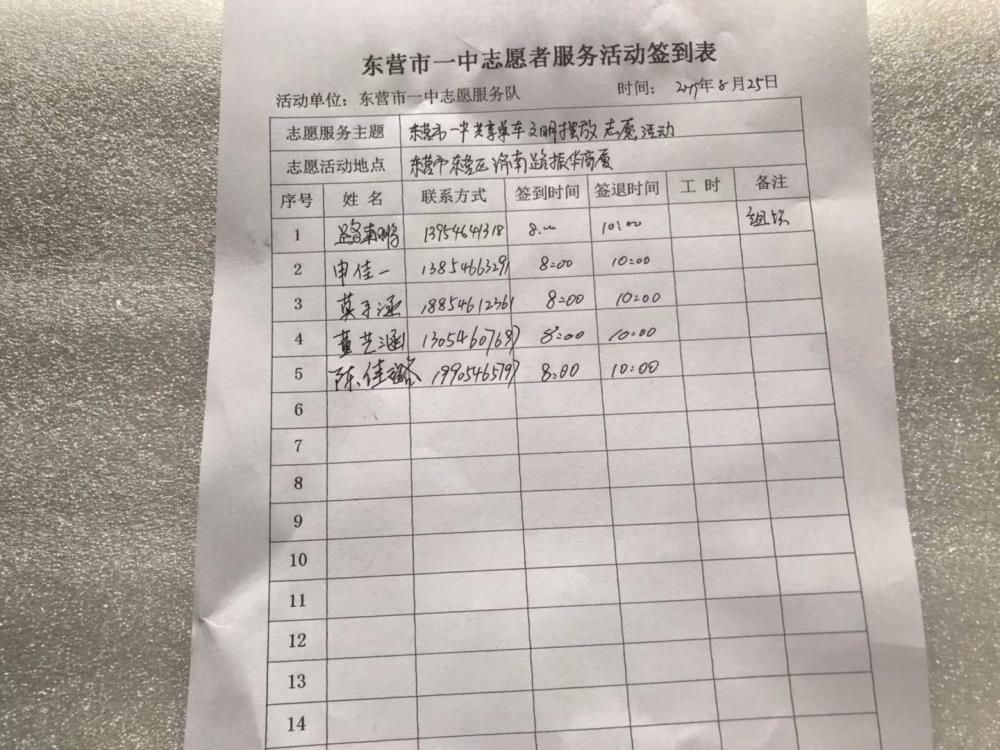 东营市一中志愿者服务活动签到表
活动单位：东营市一中志愿服务队 时间：2019年8月25日
志愿服务主题 东营市一中共享单车文明摆放志愿活动
志愿活动地点 东营市东营区济南路振华商厦
序号 姓名 联系方式 签到时间 签退时间 工时 备注
1 路南鹏 13954641318 8:00 10:00 组织
2 申佳一 13854663291 8:00 10:00
3 莫子涵 18854612361 8:00 10:00
4 董艺涵 13054607697 8:00 10:00
5 陈佳璐 19905465797 8:00 10:00
6
7
8
9
10
11
12
13
14